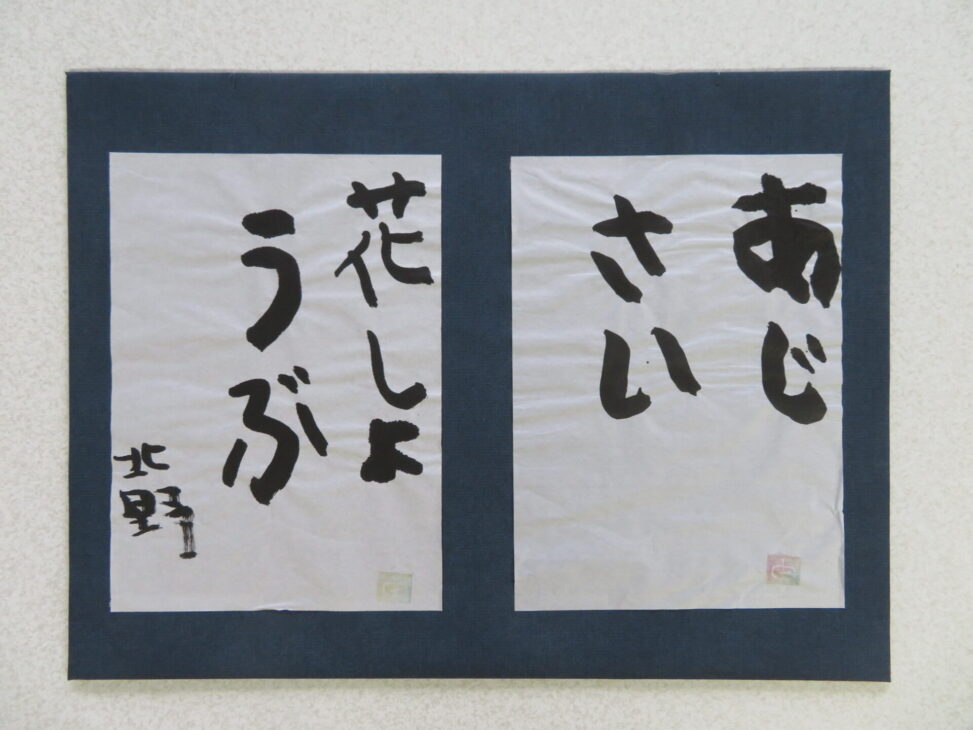 あじ
さい
花しょ
うぶ
北野